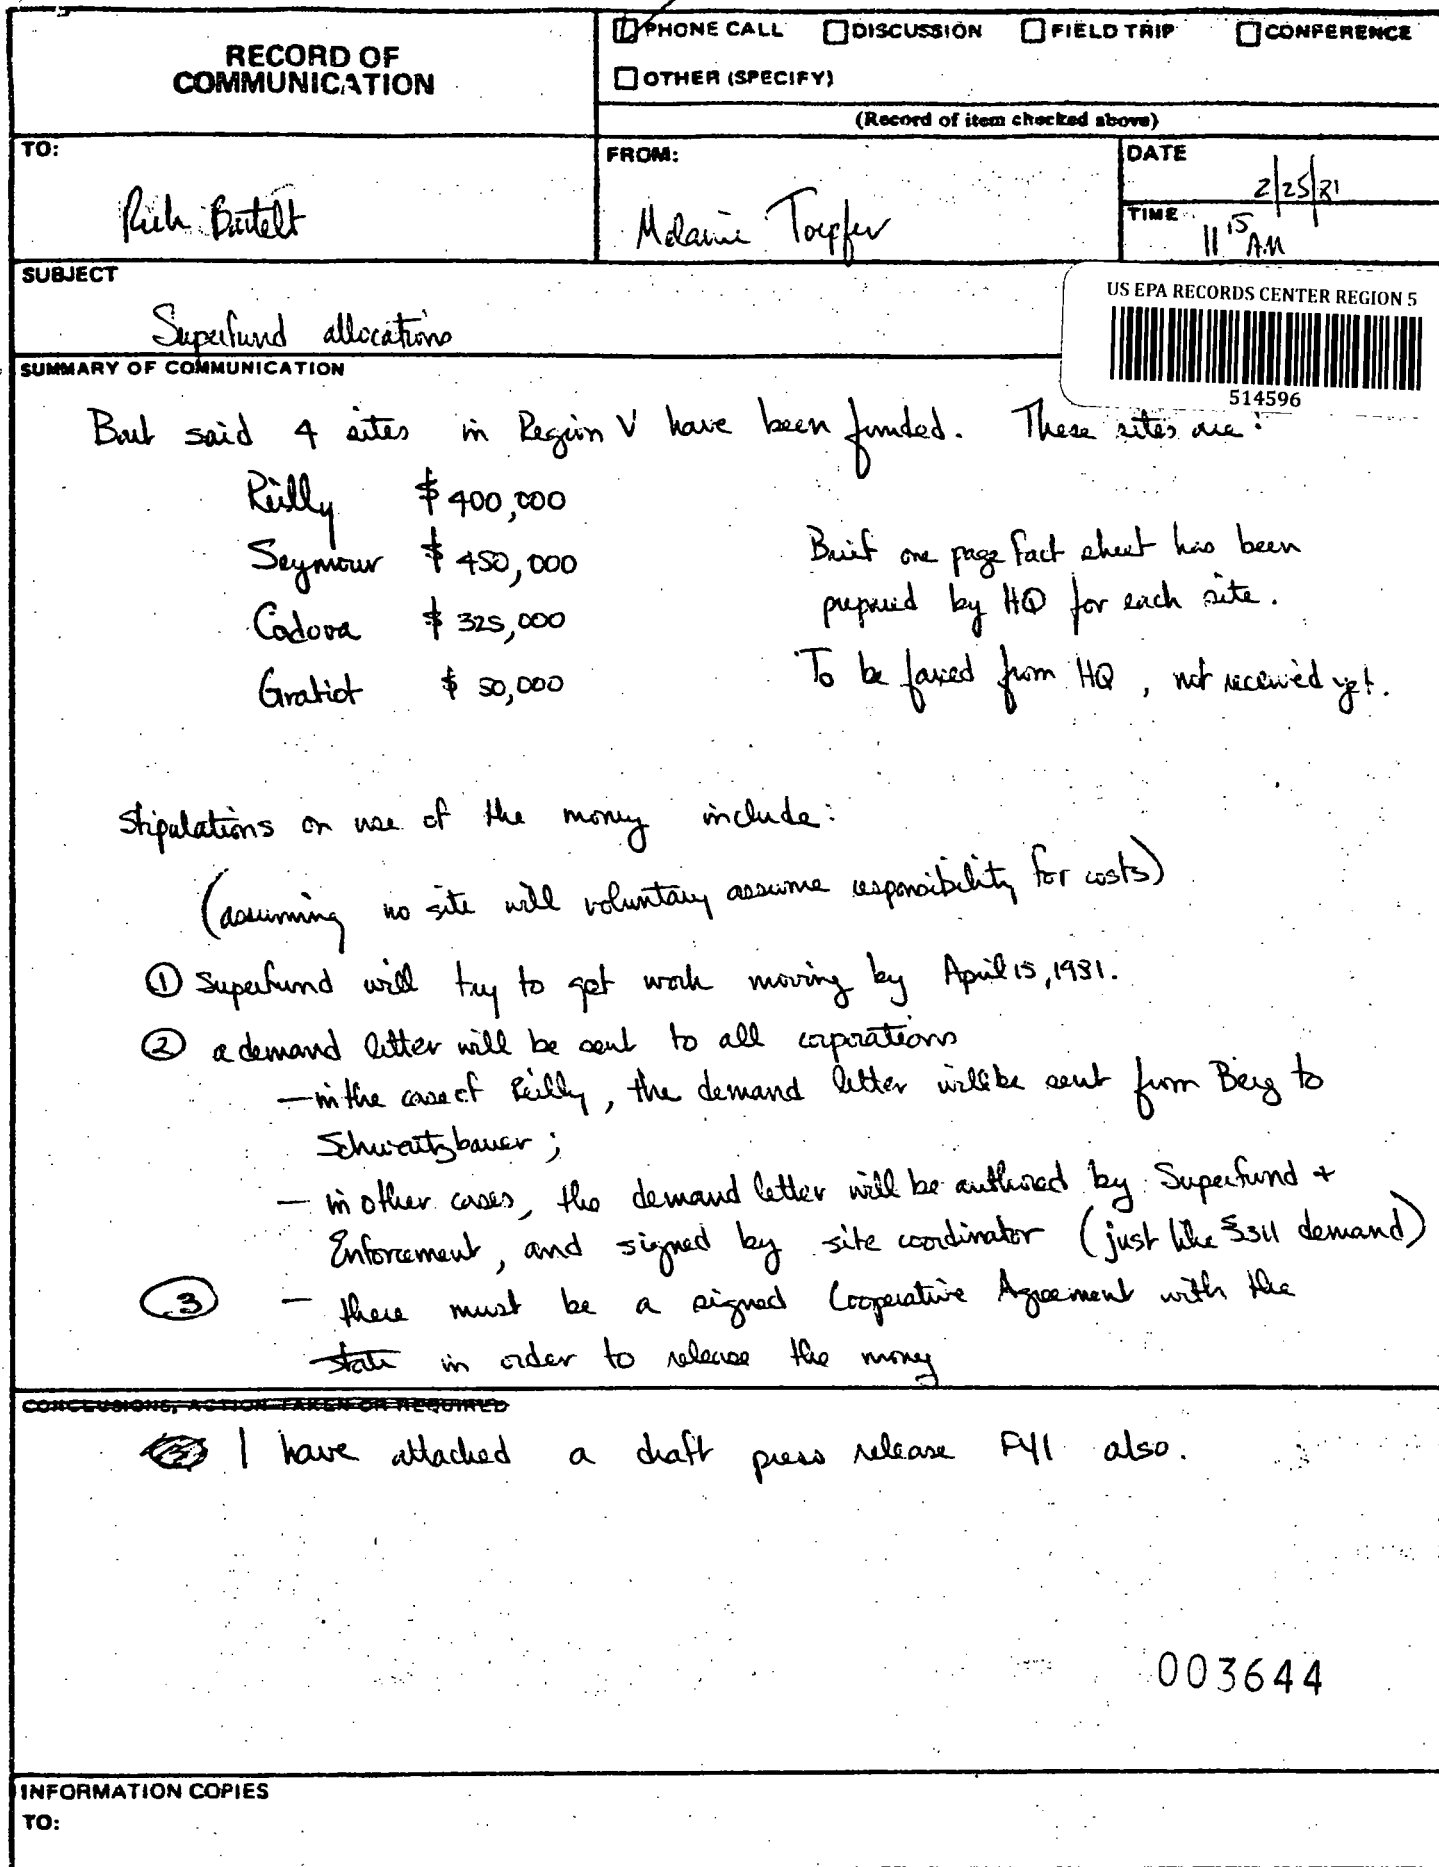 RECORD OF
COMMUNICATION
PHONE CALL DISCUSSION FIELD TRIP CONFERENCE
OTHER (SPECIFY)
(Record of item checked above)
TO:
Rich Bartelt
FROM:
Melanie Toepfer
DATE
2/25/81
TIME
11 15 AM
SUBJECT
Superfund allocations
US EPA RECORDS CENTER REGION 5
514596
SUMMARY OF COMMUNICATION
said 4 sites in Region V have been funded. These sites are:
Reilly $ 400,000
Seymour $ 450,000
Cadova $ 325,000
Gratiot $ 50,000
Brief one page fact sheet has been
prepared by HQ for each site.
To be faxed from HQ, not received yet.
Stipulations on use of the money include:
(assuming no site will voluntary assume responsibility for costs)
① Superfund will try to get work moving by April 15, 1981.
② a demand letter will be sent to all corporations
— in the case of Reilly, the demand letter will be sent from Berg to
Schwartzbauer;
— in other cases, the demand letter will be authored by Superfund +
Enforcement, and signed by site coordinator (just like §311 demand)
③ — there must be a signed Cooperative Agreement with the
state in order to release the money
CONCLUSIONS, ACTION TAKEN OR REQUIRED
I have attached a draft press release FYI also.
003644
INFORMATION COPIES
TO: